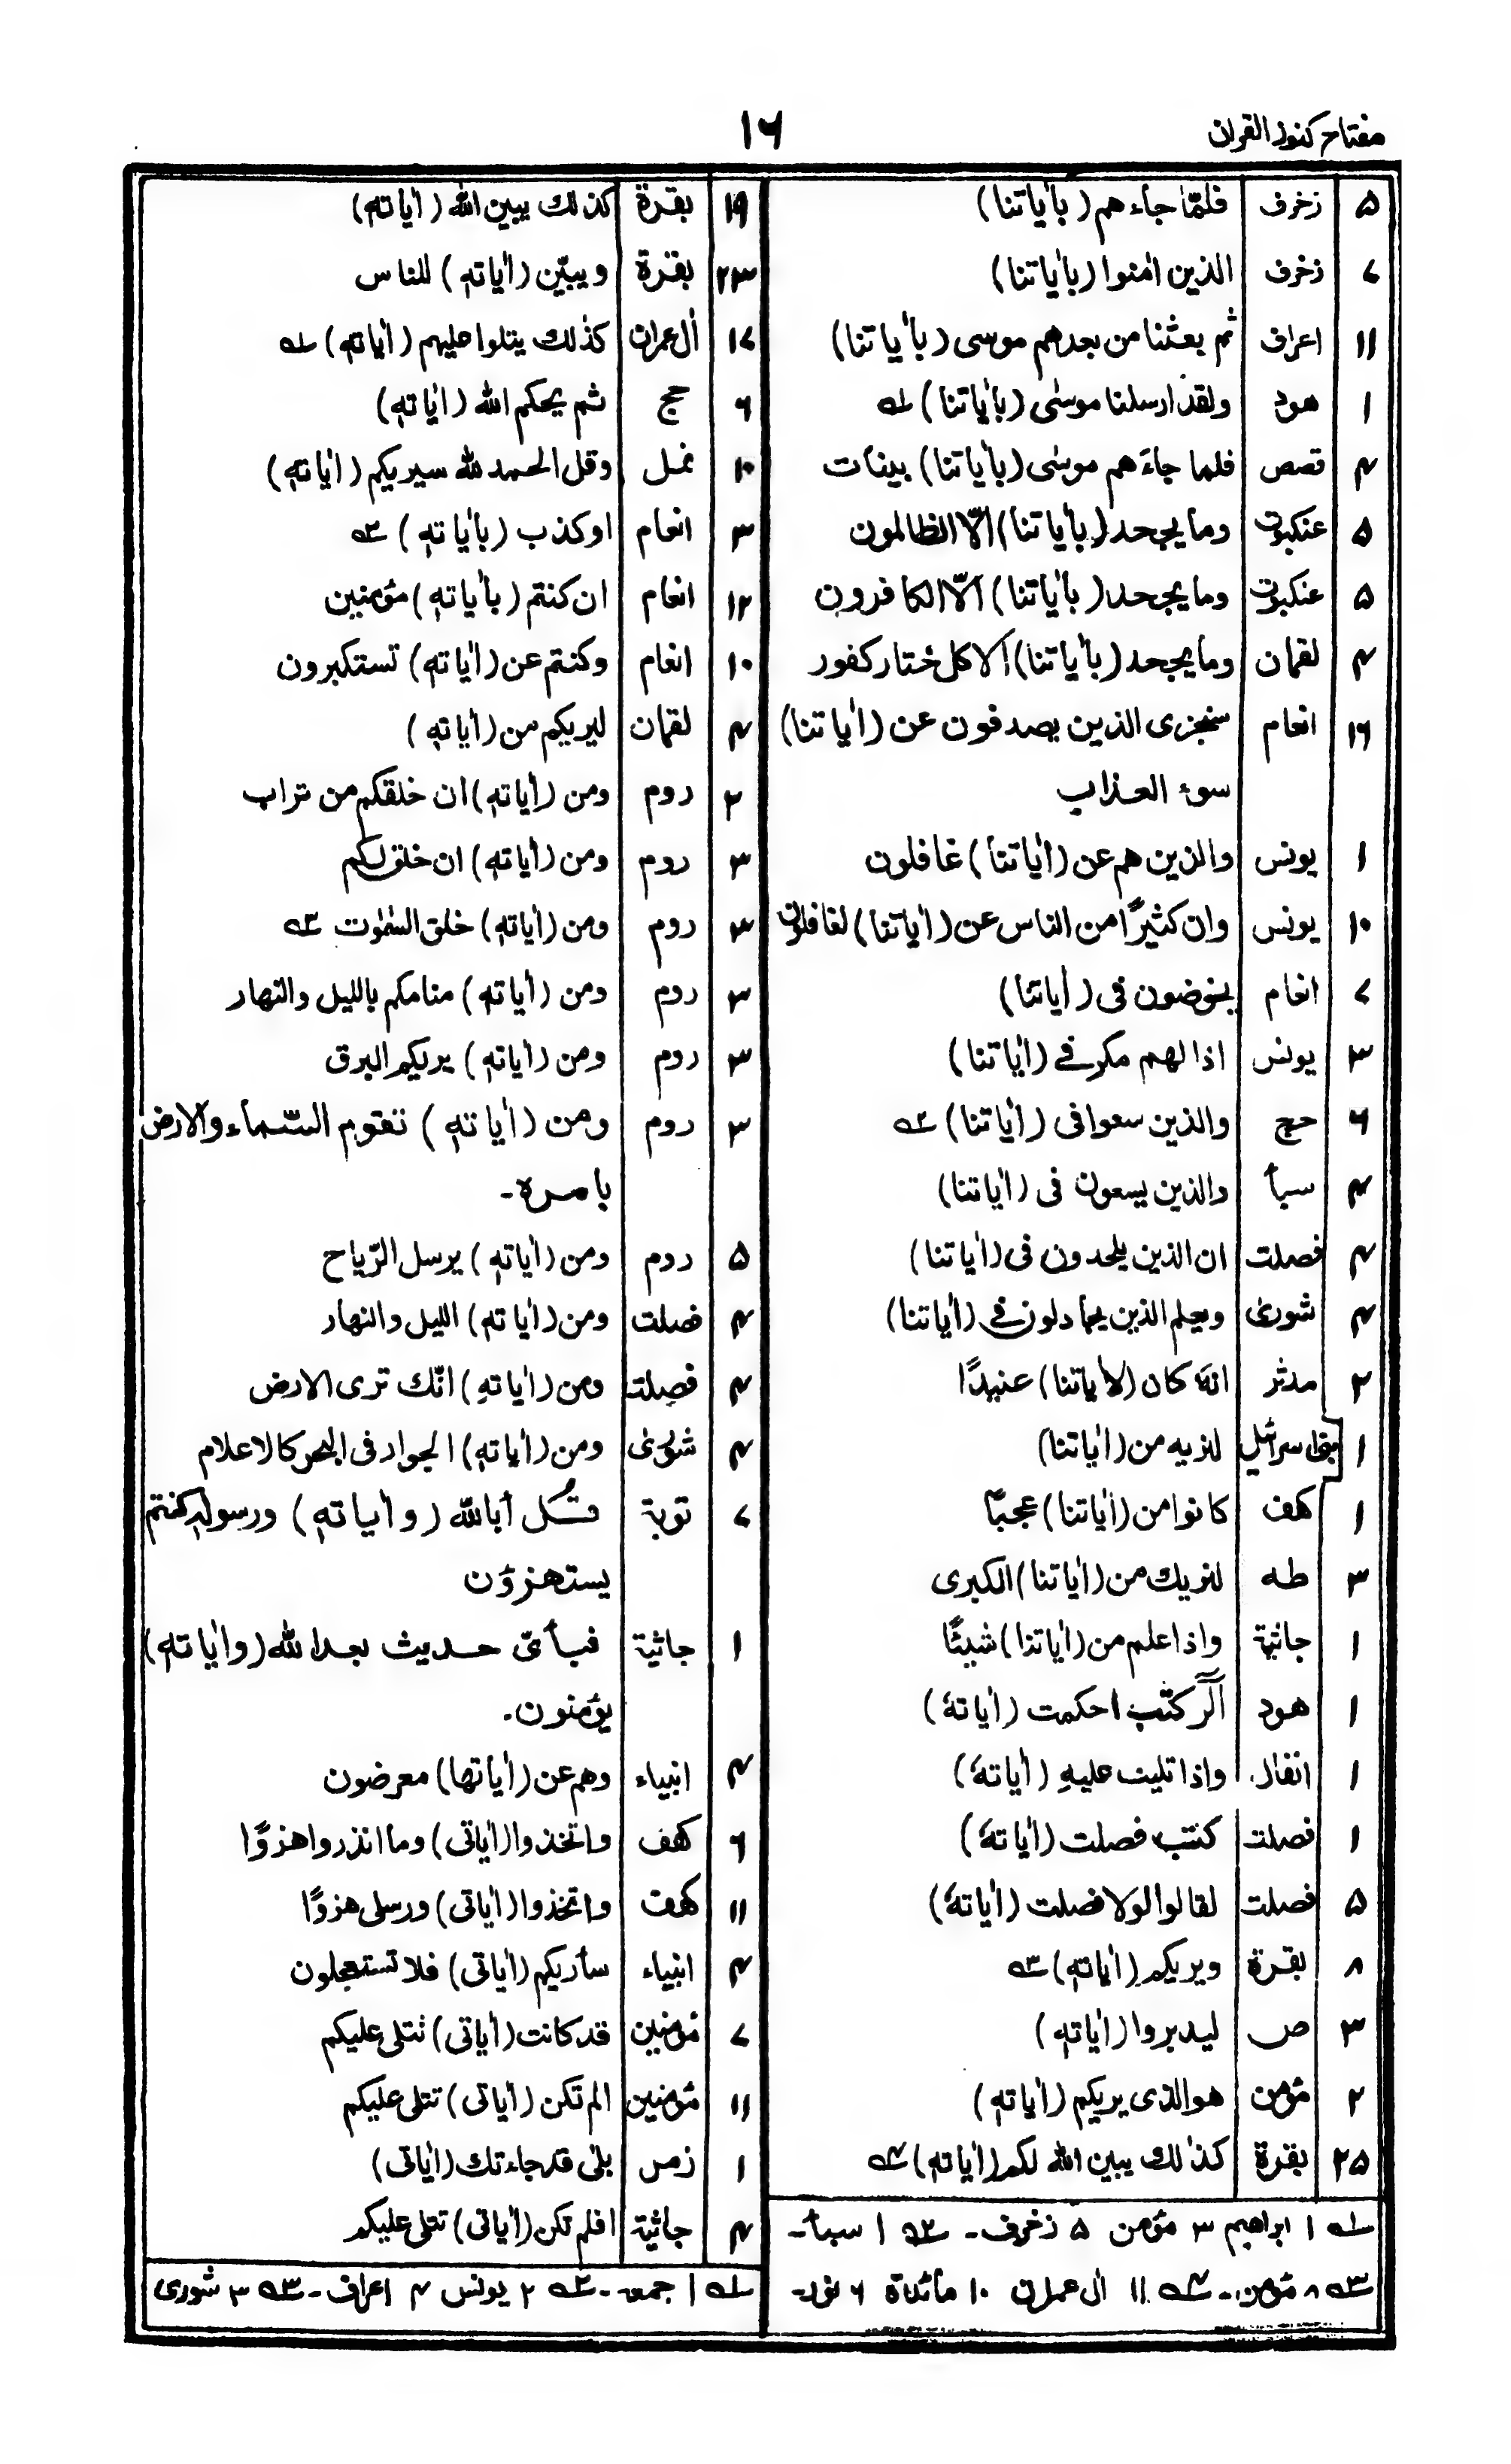 مفتاح کنوز القران
۱۶
۵ زخرف فلمّا جآءهم (بأیاتنا)
۷ زخرف الذین اٰمنوا (بأیاتنا)
۱۱ اعراف ثم بعثنا من بعدهم موسی (بأیاتنا)
۱ هود ولقد ارسلنا موسٰی (باٰیاتنا) ؎۱
۴ قصص فلما جآءهم موسٰی (بأیاتنا) بینات
۵ عنکبوت وما یجحد (بأیاتنا) الّا الظالمون
۵ عنکبوت وما یجحد (باٰیاتنا) الّا الکافرون
۴ لقمان وما یجحد (بأیاتنا) الا کل ختار کفور
۱۶ انعام سنجزی الذین یصدفون عن (اٰیاتنا)
سوء العذاب
۱ یونس والذین هم عن (اٰیاتنا) غافلون
۱۰ یونس وان کثیرًا من الناس عن (اٰیاتنا) لغافلون
۷ انعام یخوضون فی (أیاتنا)
۳ یونس اذا لهم مکر فے (اٰیاتنا)
۶ حج والذین سعوا فی (اٰیاتنا) ؎۲
۴ سبأ والذین یسعون فی (اٰیاتنا)
۴ فصلت ان الذین یلحدون فی (أیاتنا)
۴ شورٰی ویعلم الذین یجادلون فے (أیاتنا)
۲ مدثر انهٗ کان (لأیاتنا) عنیدًا
۱ بنی اسرائیل لنریه من (اٰیاتنا)
۱ کهف کانوا من (اٰیاتنا) عجبًا
۳ طه لنریك من (اٰیاتنا) الکبری
۱ جاثیة واذا علم من (اٰیاتنا) شیئًا
۱ هود الٓرٰ کتٰب احکمت (أیاتهٗ)
۱ انفال واذا تلیت علیهم (أیاتهٗ)
۱ فصلت کتٰب فصلت (اٰیاتهٗ)
۵ فصلت لقالوا لولا فصلت (أیاتهٗ)
۸ بقرة ویریکم (اٰیاتهٖ) ؎۳
۳ ص لیدبروا (اٰیاتهٖ)
۲ مؤمن هو الذی یریکم (اٰیاتهٖ)
۲۵ بقرة کذٰلك یبین الله لکم (اٰیاتهٖ) ؎۴
؎۱ ۱ ابراهیم ۳ مؤمن ۵ زخرف۔ ؎۲ ۱ سبأ۔
؎۳ ۸ مؤمن۔ ؎۴ ۱۱ اٰل عمران ۱۰ مائدة ۶ نور۔
۱۹ بقرة کذلك یبین الله (أیاتهٖ)
۲۳ بقرة ویبیّن (اٰیاتهٖ) للناس
۱۷ اٰل عمران کذٰلك یتلوا علیهم (اٰیاتهٖ) ؎۱
۶ حج ثم یحکم الله (اٰیاتهٖ)
۱۰ نمل وقل الحمد لله سیریکم (اٰیاتهٖ)
۳ انعام او کذب (بأیاتهٖ) ؎۲
۱۲ انعام ان کنتم (بأیاتهٖ) مؤمنین
۱۰ انعام وکنتم عن (اٰیاتهٖ) تستکبرون
۴ لقمان لیریکم من (أیاتهٖ)
۲ روم ومن (أیاتهٖ) ان خلقکم من تراب
۳ روم ومن (أیاتهٖ) ان خلق لکم
۳ روم ومن (أیاتهٖ) خلق السّمٰوٰت ؎۳
۳ روم ومن (أیاتهٖ) منامکم باللیل والنهار
۳ روم ومن (أیاتهٖ) یریکم البرق
۳ روم ومن (أیاتهٖ) تقوم السّماء والارض
بامره۔
۵ روم ومن (أیاتهٖ) یرسل الرّیاح
۴ فصلت ومن (أیاتهٖ) اللیل والنهار
۴ فصلت ومن (اٰیاتهٖ) انّك تری الارض
۴ شورٰی ومن (اٰیاتهٖ) الجوار فی البحر کالاعلام
۷ توبة قُل أبالله (وأیاتهٖ) ورسولهٖ کنتم
یستهزؤن
۱ جاثیة فبأیّ حدیث بعد الله (واٰیاتهٖ)
یؤمنون۔
۴ انبیاء وهم عن (أیاتها) معرضون
۶ کهف واتخذوا (اٰیاتی) وما انذروا هزوًا
۱۱ کهف واتخذوا (اٰیاتی) ورسلی هزوًا
۴ انبیاء سأریکم (اٰیاتی) فلا تستعجلون
۷ مؤمنین قد کانت (أیاتی) تتلٰی علیکم
۱۱ مؤمنین الم تکن (أیاتی) تتلٰی علیکم
۱ زمر بلٰی قد جاءتك (اٰیاتی)
۴ جاثیة افلم تکن (أیاتی) تتلٰی علیکم
؎۱ ۱ جمعه۔ ؎۲ ۲ یونس ۴ اعراف۔ ؎۳ ۳ شوری